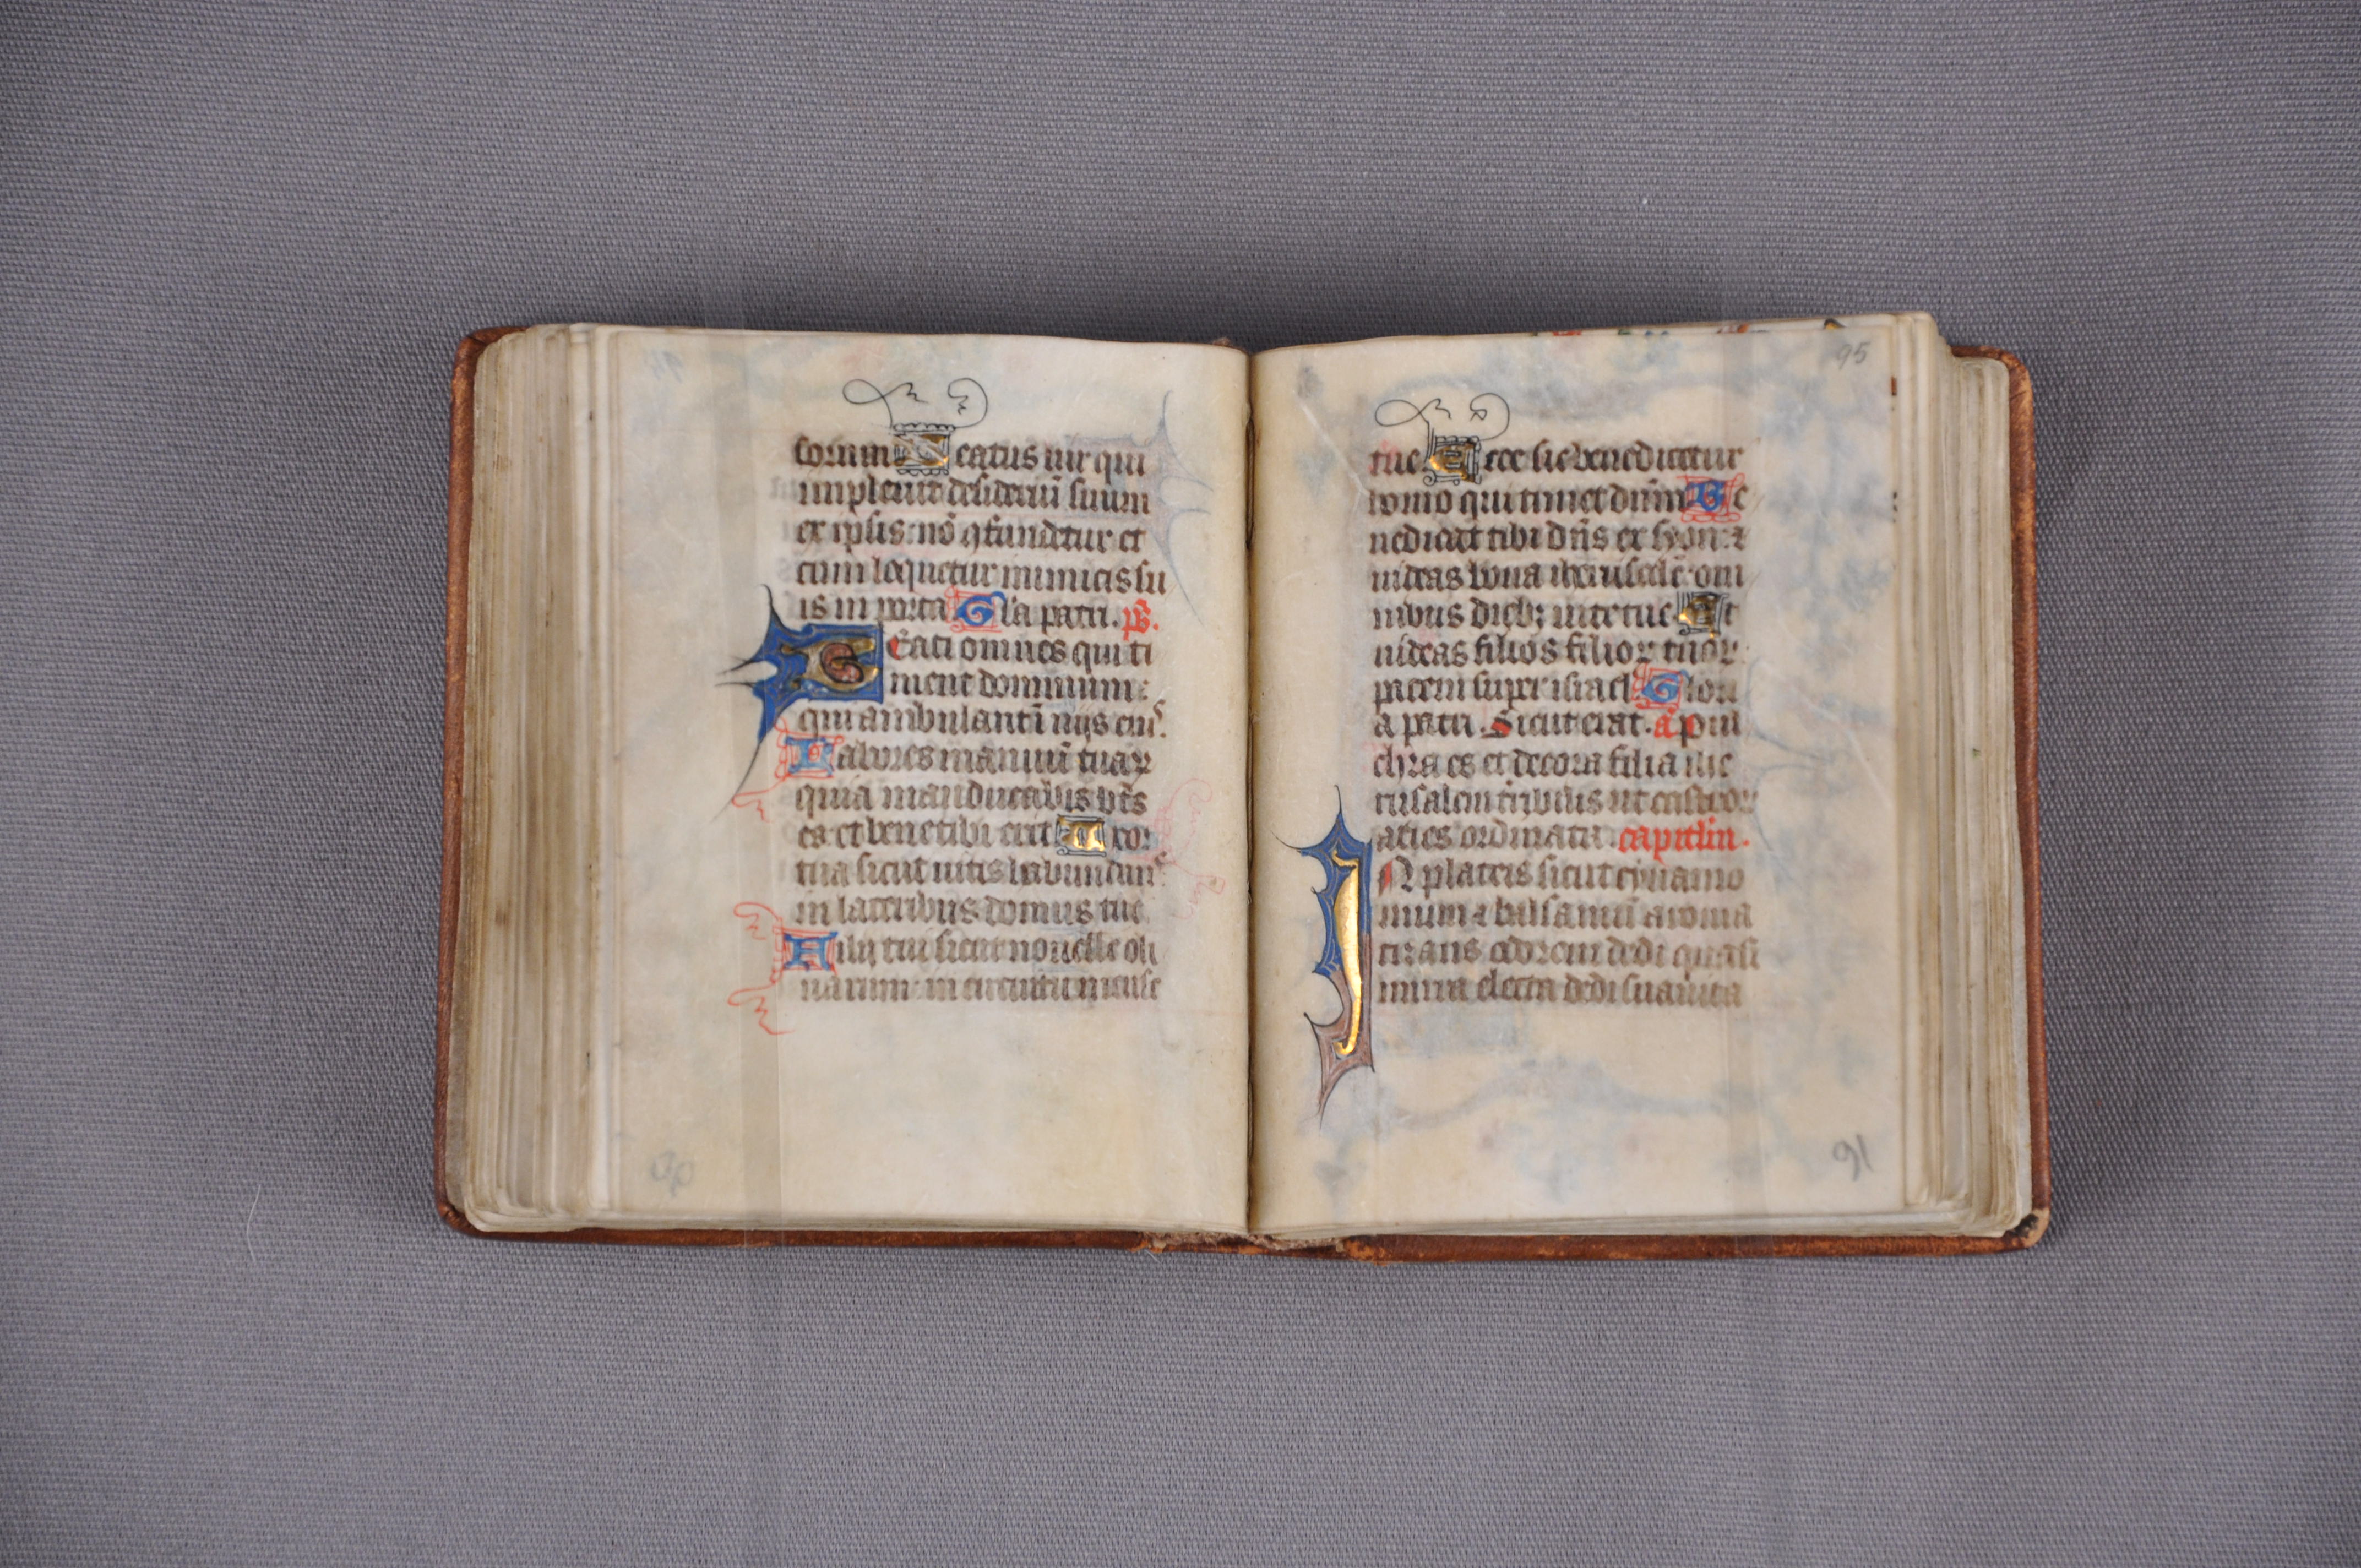 sorum Beatus uir qui
impleuit desideriũ suum
ex ipsis: nõ ꝯfundetur et
cum loquetur inimicis su
is in porta Gl'a patri. ps.
Beati omnes qui ti
ment dominum:
qui ambulant ĩ uijs eius.
Labores manuũ tuaꝝ
quia manducabis bt̃s
es et bene tibi erit Uxor
tua sicut uitis habundans
in lateribus domus tue
Filij tui sicut nouelle oli
uarum: in circuitu mense
90
95
tue Ecce sic benedicetur
homo qui timet dñm Be
nedicat tibi dñs ex syon: ⁊
uideas bona iherusalẽ om
nibus diebꝫ uite tue Et
uideas filios filioꝝ tuoꝝ
pacem super israel Glori
a patri. Sicut erat. a͞ Pul
chra es et decora filia ihe
rusalem terribilis ut castror
acies ordinata. capitlm.
IN plateis sicut cynamo
mum ⁊ balsamũ aroma
tizans odorem dedi quasi
mirra electa dedi suauita
91